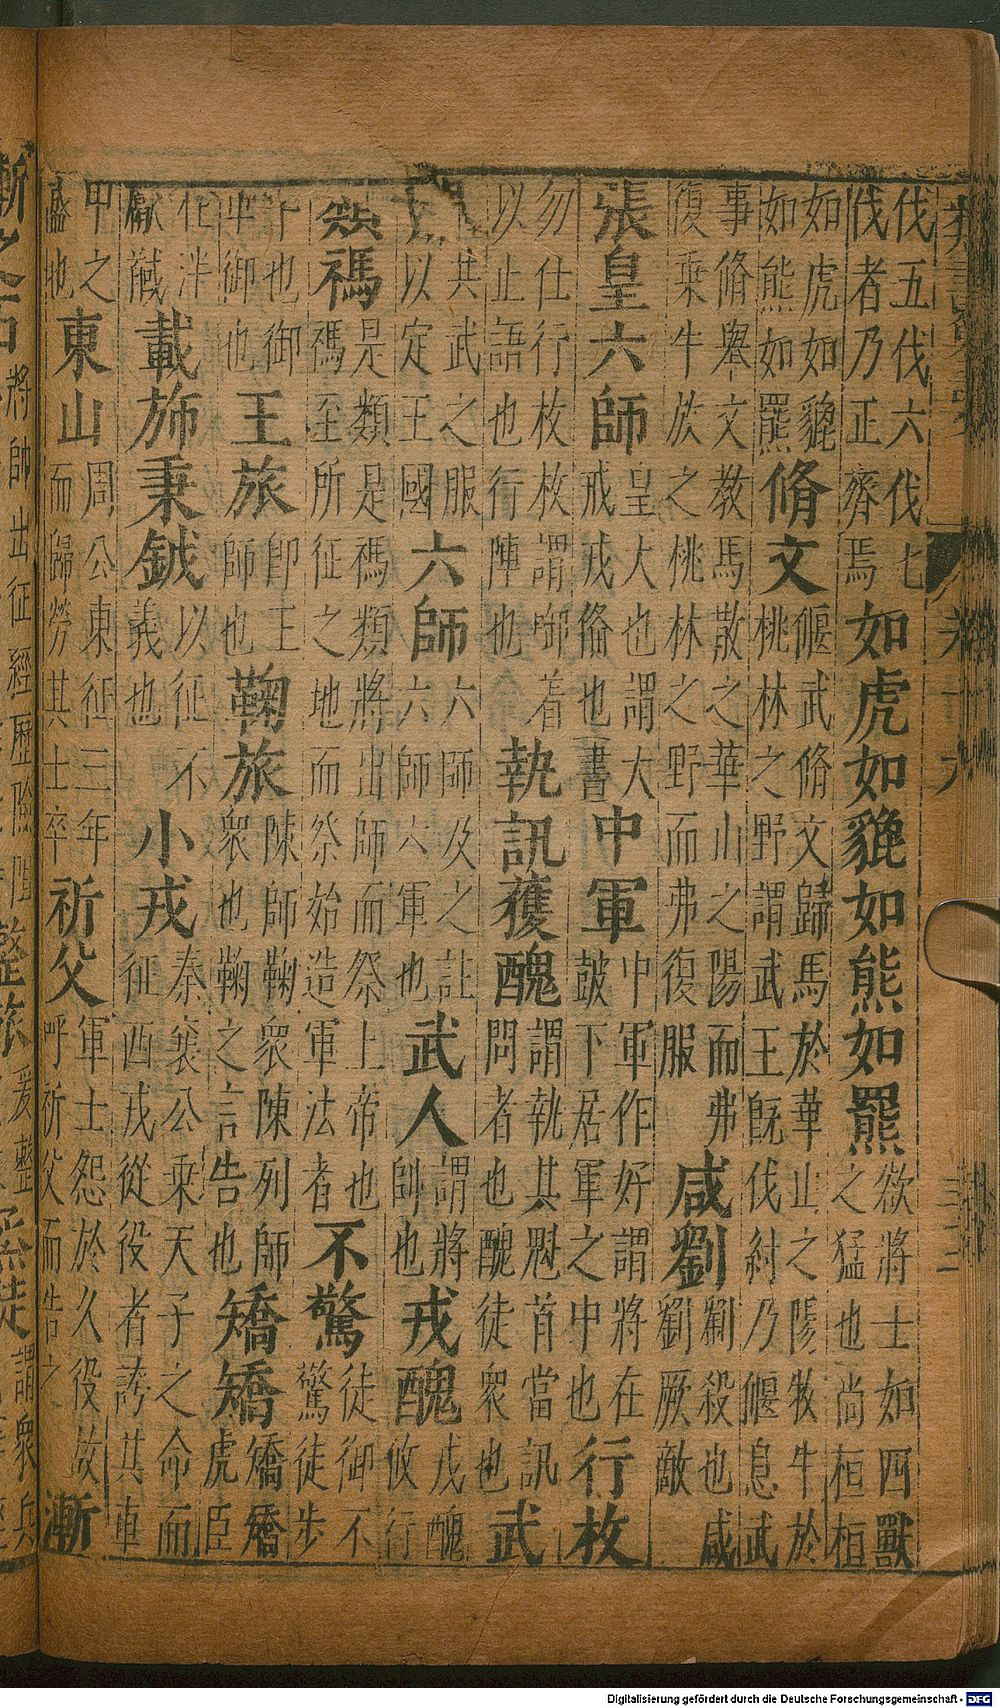 卷十九
伐五伐六伐七
伐者乃正齊焉
如虎如貔如熊如羆
欲將士如四獸
之猛也尚桓桓
如虎如貔
如熊如羆
脩文
偃武脩文歸馬於華山之陽牧牛於
桃林之野謂武王既伐紂乃偃息武
事脩舉文教馬散之華山之陽而弗
復乘牛放之桃林之野而弗復服
咸劉
劉殺也咸
劉厥敵
張皇六師
皇大也謂大
戒戎僃也書
中軍
中軍作好謂將在
鼓下居軍之中也
行枚
勿仕行枚枚謂啣着
以止語也行陣也
執訊獲醜
謂執其魁首當訊
問者也醜徒衆也
武
共武之服
以定王國
六師
六師及之註
六師六軍也
武人
謂將
帥也
戎醜
戎醜
攸行
類禡
是類是禡類將出師而祭上帝也
禡至所征之地而祭始造軍法者
不驚
徒御不
驚徒步
行也御
車御也
王旅
即王
師也
鞠旅
陳師鞠衆陳列師
衆也鞠之言告也
矯矯
矯矯
虎臣
在泮
獻馘
載斾秉鉞
以征不
義也
小戎
秦襄公乘天子之命而
征西戎從役者誇其車
甲之
盛也
東山
周公東征三年
而歸勞其士卒
祈父
軍士怨於久役故
呼祈父而告之
漸
漸之石
將帥出征經歷險阻
整旅
爰整
徒
謂衆兵
Digitalisierung gefördert durch die Deutsche Forschungsgemeinschaft - DFG